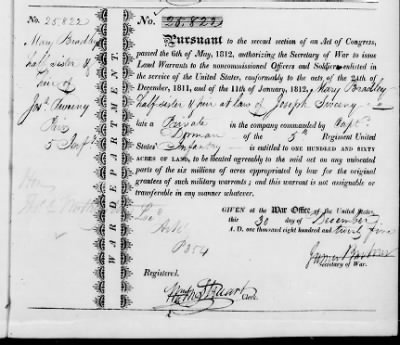 No. 25.822
Mary Bradley
half sister &
heir of
Jos. Sweny
5 Inf.
WAR DEPARTMENT.
No. 25.822
Pursuant to the second section of an Act of Congress,
passed the 6th of May, 1812, authorizing the Secretary of War to issue
Land Warrants to the noncommissioned Officers and Soldiers enlisted in
the service of the United States, conformably to the acts of the 24th of
December, 1811, and of the 11th of January, 1812, Mary Bradley
half sister & heir at law of Joseph Sweny
late a Private in the company commanded by Capt.
of the 5th Regiment United
States' Infantry is entitled to ONE HUNDRED AND SIXTY
ACRES OF LAND, to be located agreeably to the said act on any unlocated
parts of the six millions of acres appropriated by law for the original
grantees of such military warrants; and this warrant is not assignable or
transferable in any manner whatever.
GIVEN at the War Office of the United States,
this 30 day of December
A. D. one thousand eight hundred and twenty five
James Barbour
Secretary of War.
Registered.
Stuart
Clerk.